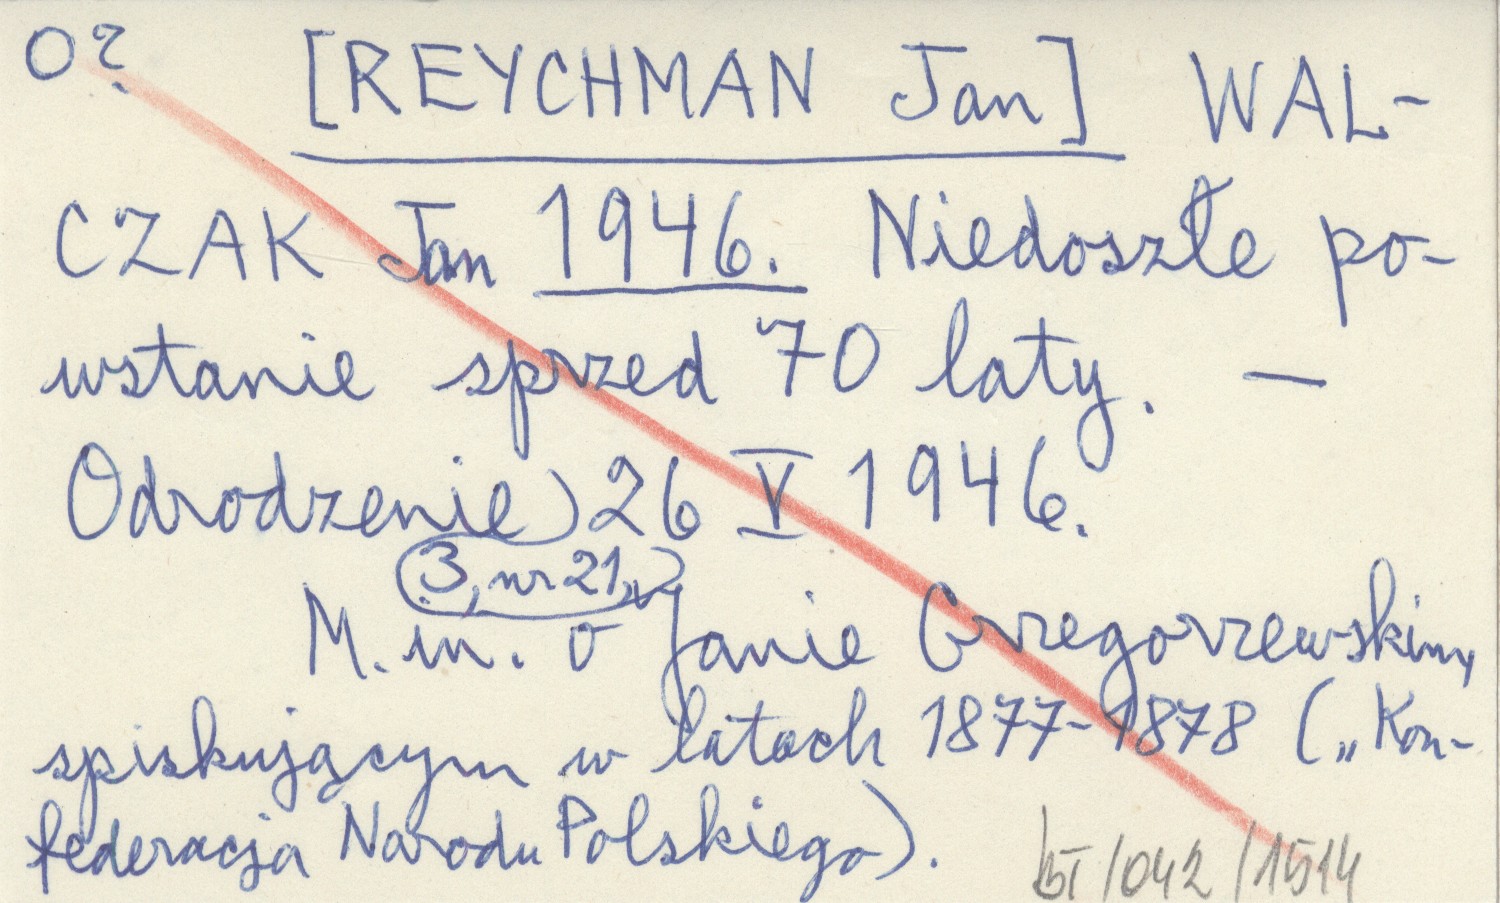 O? [REYCHMAN Jan] WAL-
CZAK Jan 1946. Niedoszłe po-
wstanie sprzed 70 laty. —
Odrodzenie) 26 V 1946.
3, nr 21,
M. in. o Janie Grzegorzewskim,
spiskującym w latach 1877-1878 („Kon-
federacja Narodu Polskiego).
/042/1514